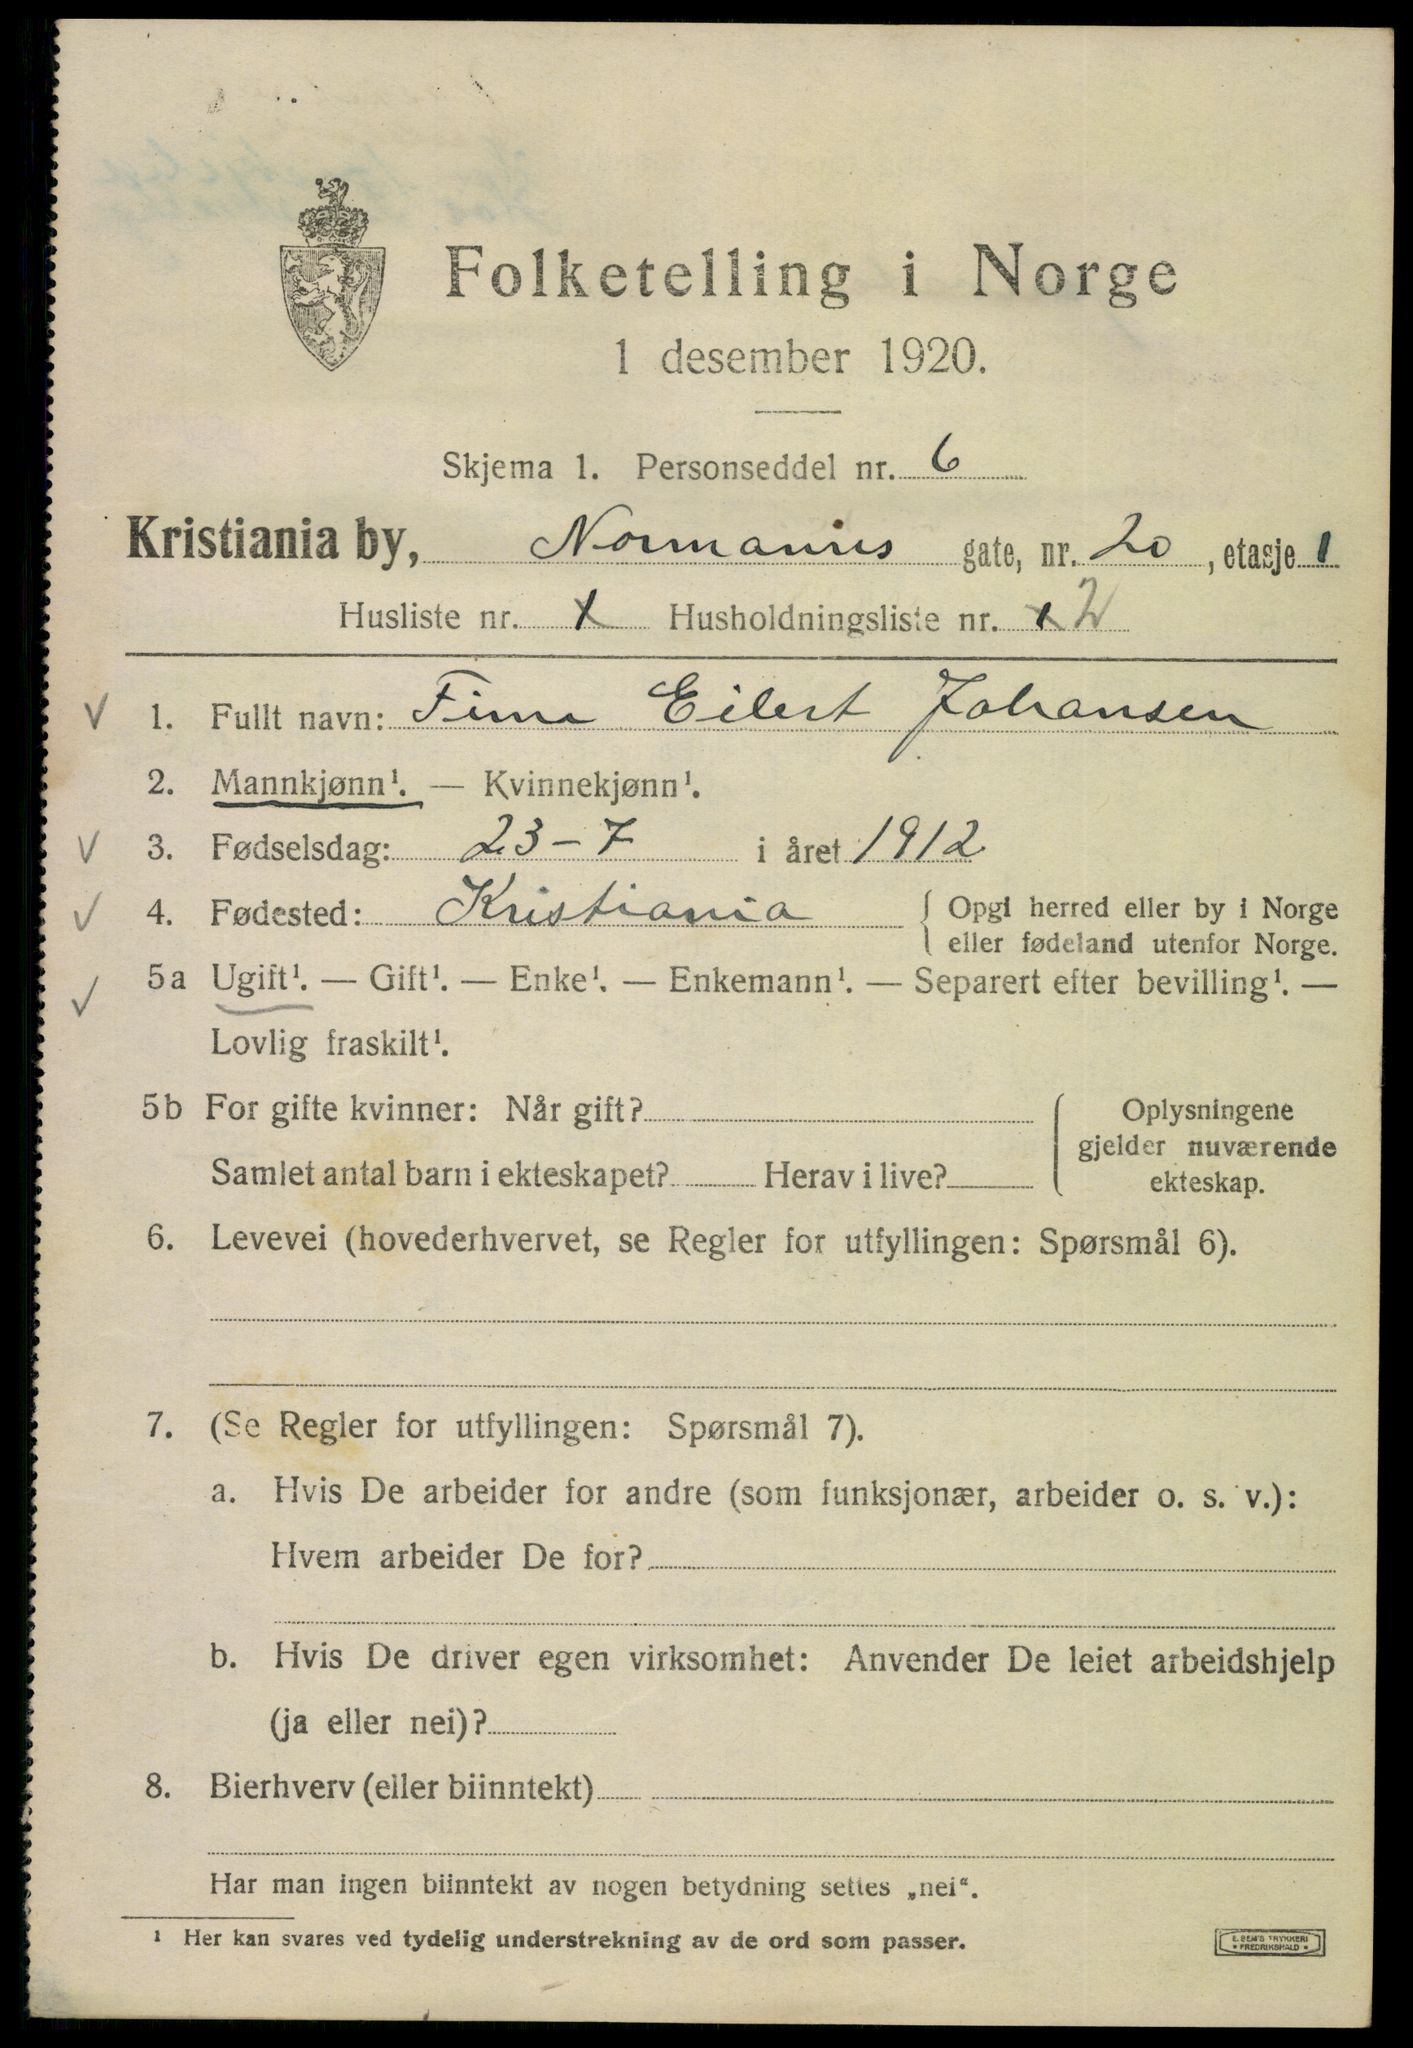 Folketelling i Norge
1 desember 1920.
Skjema 1. Personseddel nr. 6
Kristiania by, Normannis gate, nr. 20, etasje 1
Husliste nr. 1 Husholdningsliste nr. 1 2
1. Fullt navn: Eilert Johansen
2. Mannkjønn¹. — Kvinnekjønn¹.
3. Fødselsdag: 23-7 i året 1912
4. Fødested: Kristiania { Opgi herred eller by i Norge
eller fødeland utenfor Norge.
5a Ugift¹. — Gift¹. — Enke¹. — Enkemann¹. — Separert efter bevilling¹. —
Lovlig fraskilt¹.
5b For gifte kvinner: Når gift? Oplysningene
gjelder nuværende
Samlet antal barn i ekteskapet? Herav i live? ekteskap.
6. Levevei (hovederhvervet, se Regler for utfyllingen: Spørsmål 6).
7. (Se Regler for utfyllingen: Spørsmål 7).
a. Hvis De arbeider for andre (som funksjonær, arbeider o. s. v.):
Hvem arbeider De for?
b. Hvis De driver egen virksomhet: Anvender De leiet arbeidshjelp
(ja eller nei)?
8. Bierhverv (eller biinntekt)
Har man ingen biinntekt av nogen betydning settes „nei“.
¹ Her kan svares ved tydelig understrekning av de ord som passer.
E. SEM'S TRYKKERI
• FREDRIKSHALD •